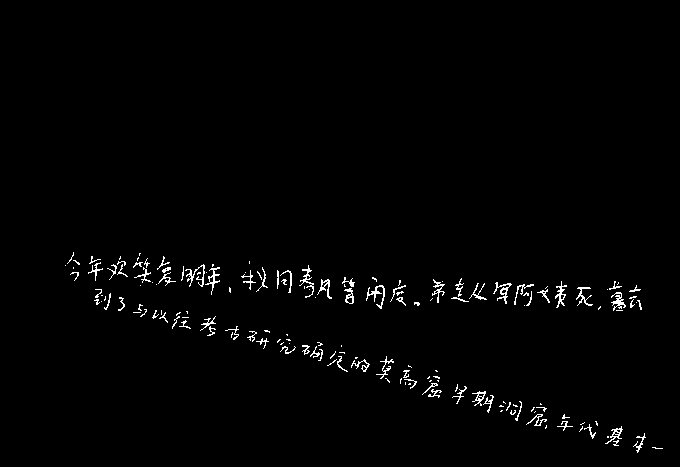 今年欢笑复明年,秋月春风等闲度。弟走从军阿姨死,暮去
到了与以往考古研究确定的莫高窟早期洞窟年代基本一